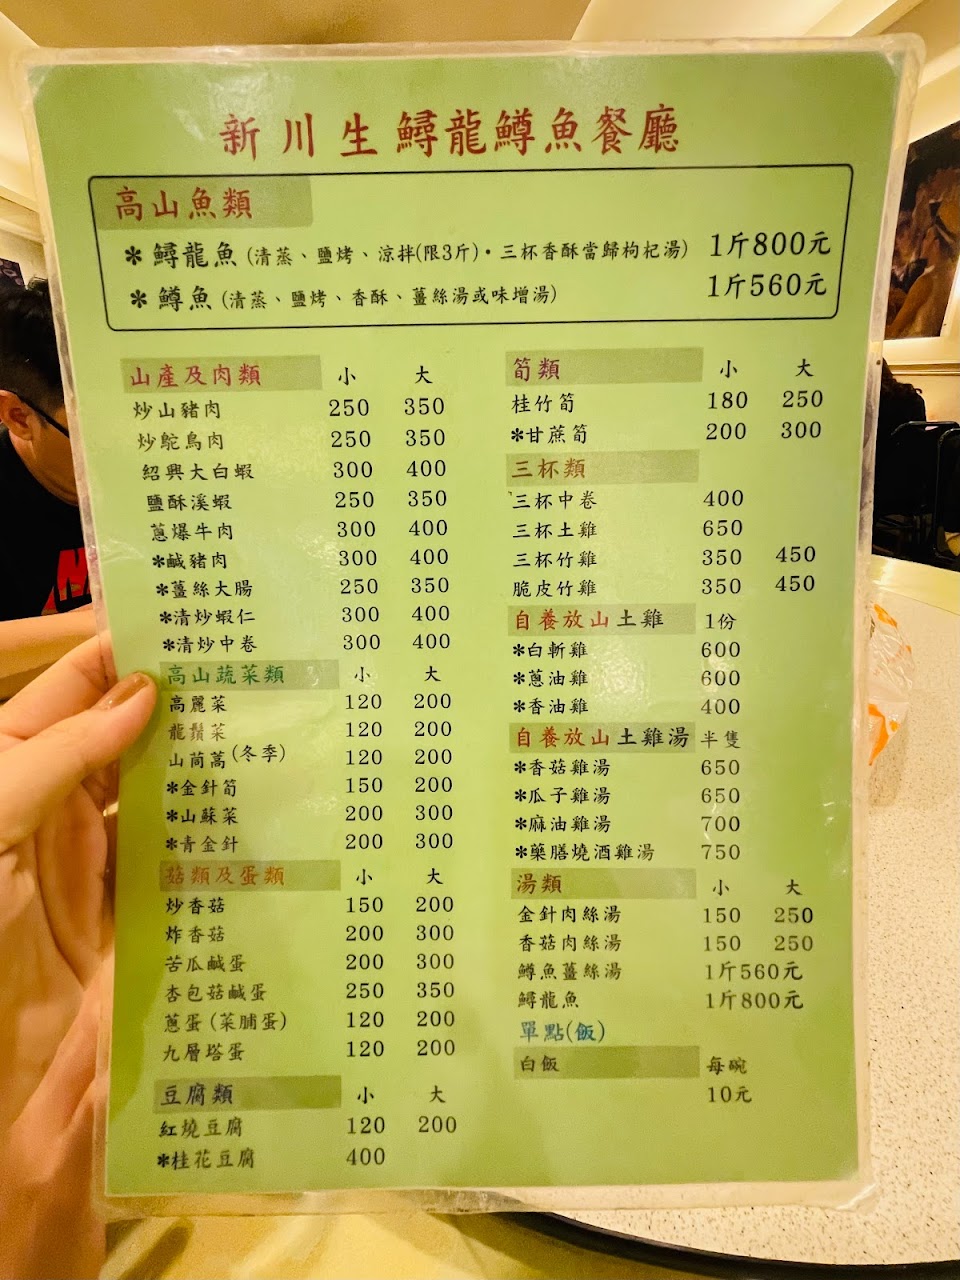 新川生鱘龍鱒魚餐廳
高山魚類
✻ 鱘龍魚 (清蒸、鹽烤、涼拌(限3斤)·三杯香酥當歸枸杞湯) 1斤800元
✻ 鱒魚 (清蒸、鹽烤、香酥、薑絲湯或味增湯) 1斤560元
山產及肉類 小 大
炒山豬肉 250 350
炒鴕鳥肉 250 350
紹興大白蝦 300 400
鹽酥溪蝦 250 350
蔥爆牛肉 300 400
✻鹹豬肉 300 400
✻薑絲大腸 250 350
✻清炒蝦仁 300 400
✻清炒中卷 300 400
高山蔬菜類 小 大
高麗菜 120 200
龍鬚菜 120 200
山茼蒿(冬季) 120 200
✻金針筍 150 200
✻山蘇菜 200 300
✻青金針 200 300
菇類及蛋類 小 大
炒香菇 150 200
炸香菇 200 300
苦瓜鹹蛋 200 300
杏包菇鹹蛋 250 350
蔥蛋(菜脯蛋) 120 200
九層塔蛋 120 200
豆腐類 小 大
紅燒豆腐 120 200
✻桂花豆腐 400
筍類 小 大
桂竹筍 180 250
✻甘蔗筍 200 300
三杯類
三杯中卷 400
三杯土雞 650
三杯竹雞 350 450
脆皮竹雞 350 450
自養放山土雞 1份
✻白斬雞 600
✻蔥油雞 600
✻香油雞 400
自養放山土雞湯 半隻
✻香菇雞湯 650
✻瓜子雞湯 650
✻麻油雞湯 700
✻藥膳燒酒雞湯 750
湯類 小 大
金針肉絲湯 150 250
香菇肉絲湯 150 250
鱒魚薑絲湯 1斤560元
鱘龍魚 1斤800元
單點(飯)
白飯 每碗
10元